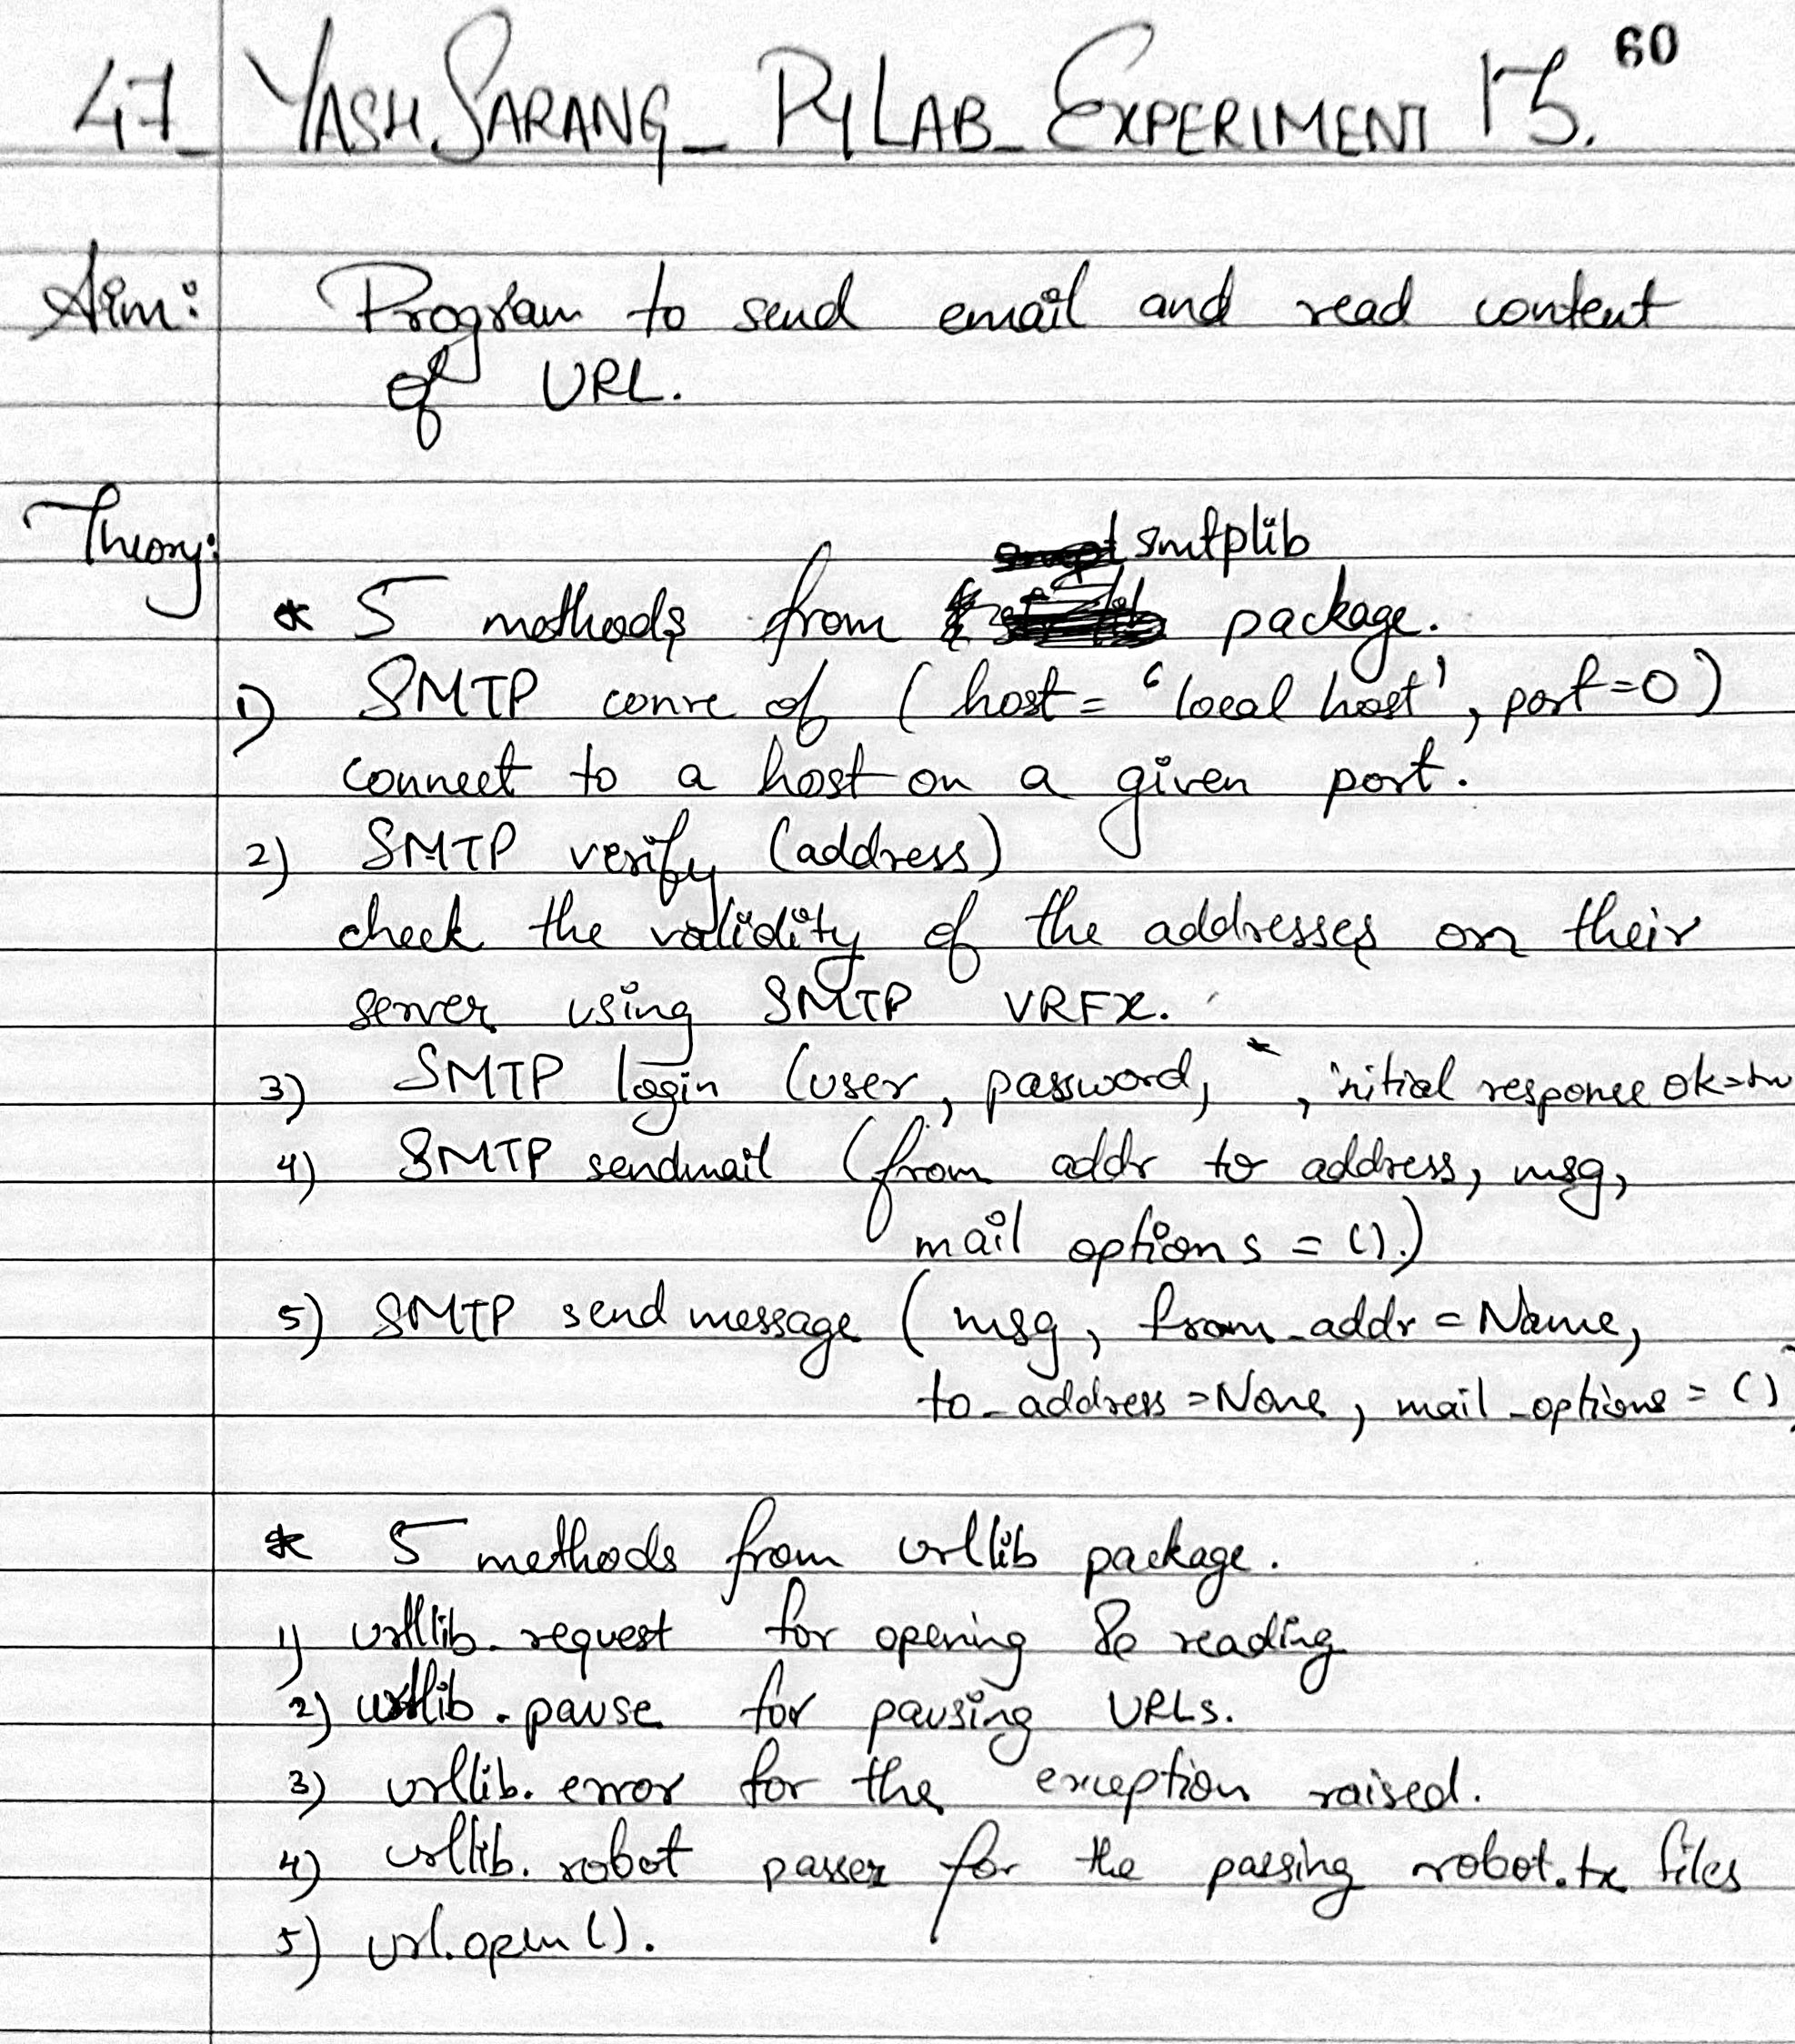 60
47_ YASH SARANG_ PYLAB_ EXPERIMENT 15.
Aim: Program to send email and read content
of URL.
Theory:
smtplib
* 5 methods from package.
1) SMTP conre of (host = 'local host', port=0)
connect to a host on a given port.
2) SMTP verify (address)
check the validity of the addresses on their
server using SMTP VRFX.
3) SMTP login (user, password, *, initial response ok=tru
4) SMTP sendmail (from addr to address, msg,
mail options = ().)
5) SMTP send message (msg, from_addr = Name,
to_address = None, mail_options = ()
* 5 methods from urllib package.
1) urllib.request for opening & reading
2) urllib.pause for pausing URLs.
3) urllib.error for the exception raised.
4) urllib.robot passer for the passing robot.tx files
5) url.open().